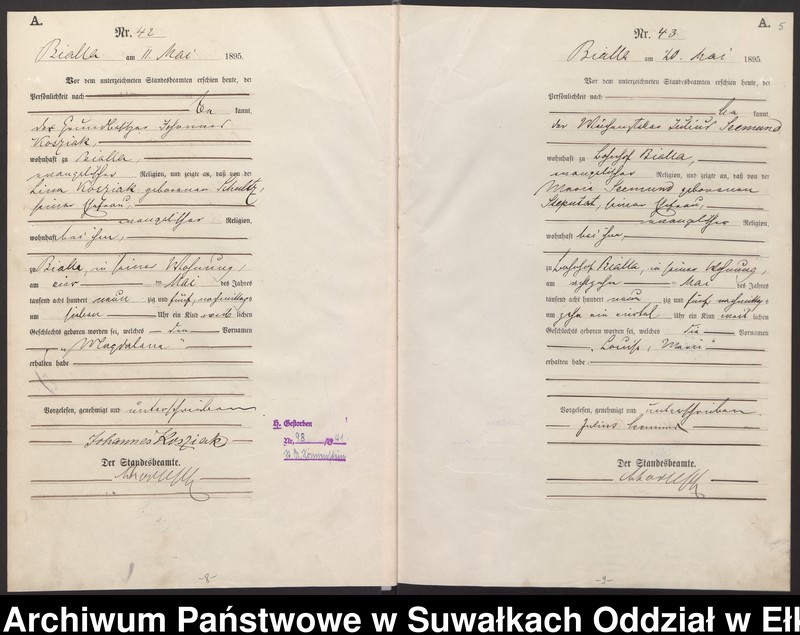 A.
Nr. 42
Bialla am 11. Mai 1895.
Vor dem unterzeichneten Standesbeamten erschien heute, der
Persönlichkeit nach
be kannt,
der Grundbesitzer Johannes
Kosziak,
wohnhaft zu Bialla,
evangelischer Religion, und zeigte an, daß von der
Lina Kosziak geborenen Schultz,
seiner Ehefrau,
evangelischer Religion,
wohnhaft bei ihm,
zu Bialla, in seiner Wohnung,
am ten Mai des Jahres
tausend acht hundert neun zig und fünf, nachmittags
um sieben Uhr ein Kind weib lichen
Geschlechts geboren worden sei, welches den Vornamen
„Magdalena"
erhalten habe
Vorgelesen, genehmigt und unterschrieben
Johannes Kosziak
Der Standesbeamte.
H. Gestorben
Nr. 98 /19 41
-8-
A. 5
Nr. 43
Bialla am 20. Mai 1895.
Vor dem unterzeichneten Standesbeamten erschien heute, der
Persönlichkeit nach
be kannt,
der Weichensteller Julius Seemund
wohnhaft zu Bahnhof Bialla,
evangelischer Religion, und zeigte an, daß von der
Marie Seemund geborenen
seiner Ehefrau,
evangelischer Religion,
wohnhaft bei ihm,
zu Bahnhof Bialla, in seiner Wohnung,
am achtzehn ten Mai des Jahres
tausend acht hundert neun zig und fünf nachmittags
um zehn ein viertel Uhr ein Kind weib lichen
Geschlechts geboren worden sei, welches die Vornamen
„Louise, Marie"
erhalten habe
Vorgelesen, genehmigt und unterschrieben
Julius
Der Standesbeamte.
-9-
Archiwum Państwowe w Suwałkach Oddział w Eł